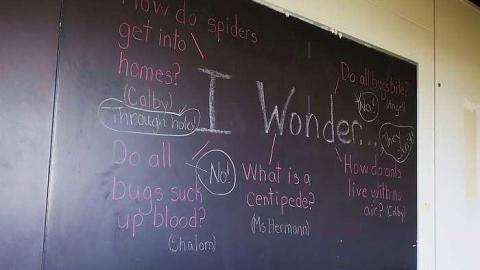 How do spiders
get into
homes?
(Colby)
Through holes
I Wonder...
Do all
bugs suck
up blood?
(Shalom)
No!
What is a
centipede?
(Ms Hermann)
Do all bugs bite?
(Angel)
No!
How do ants
live with no
air? (Colby)